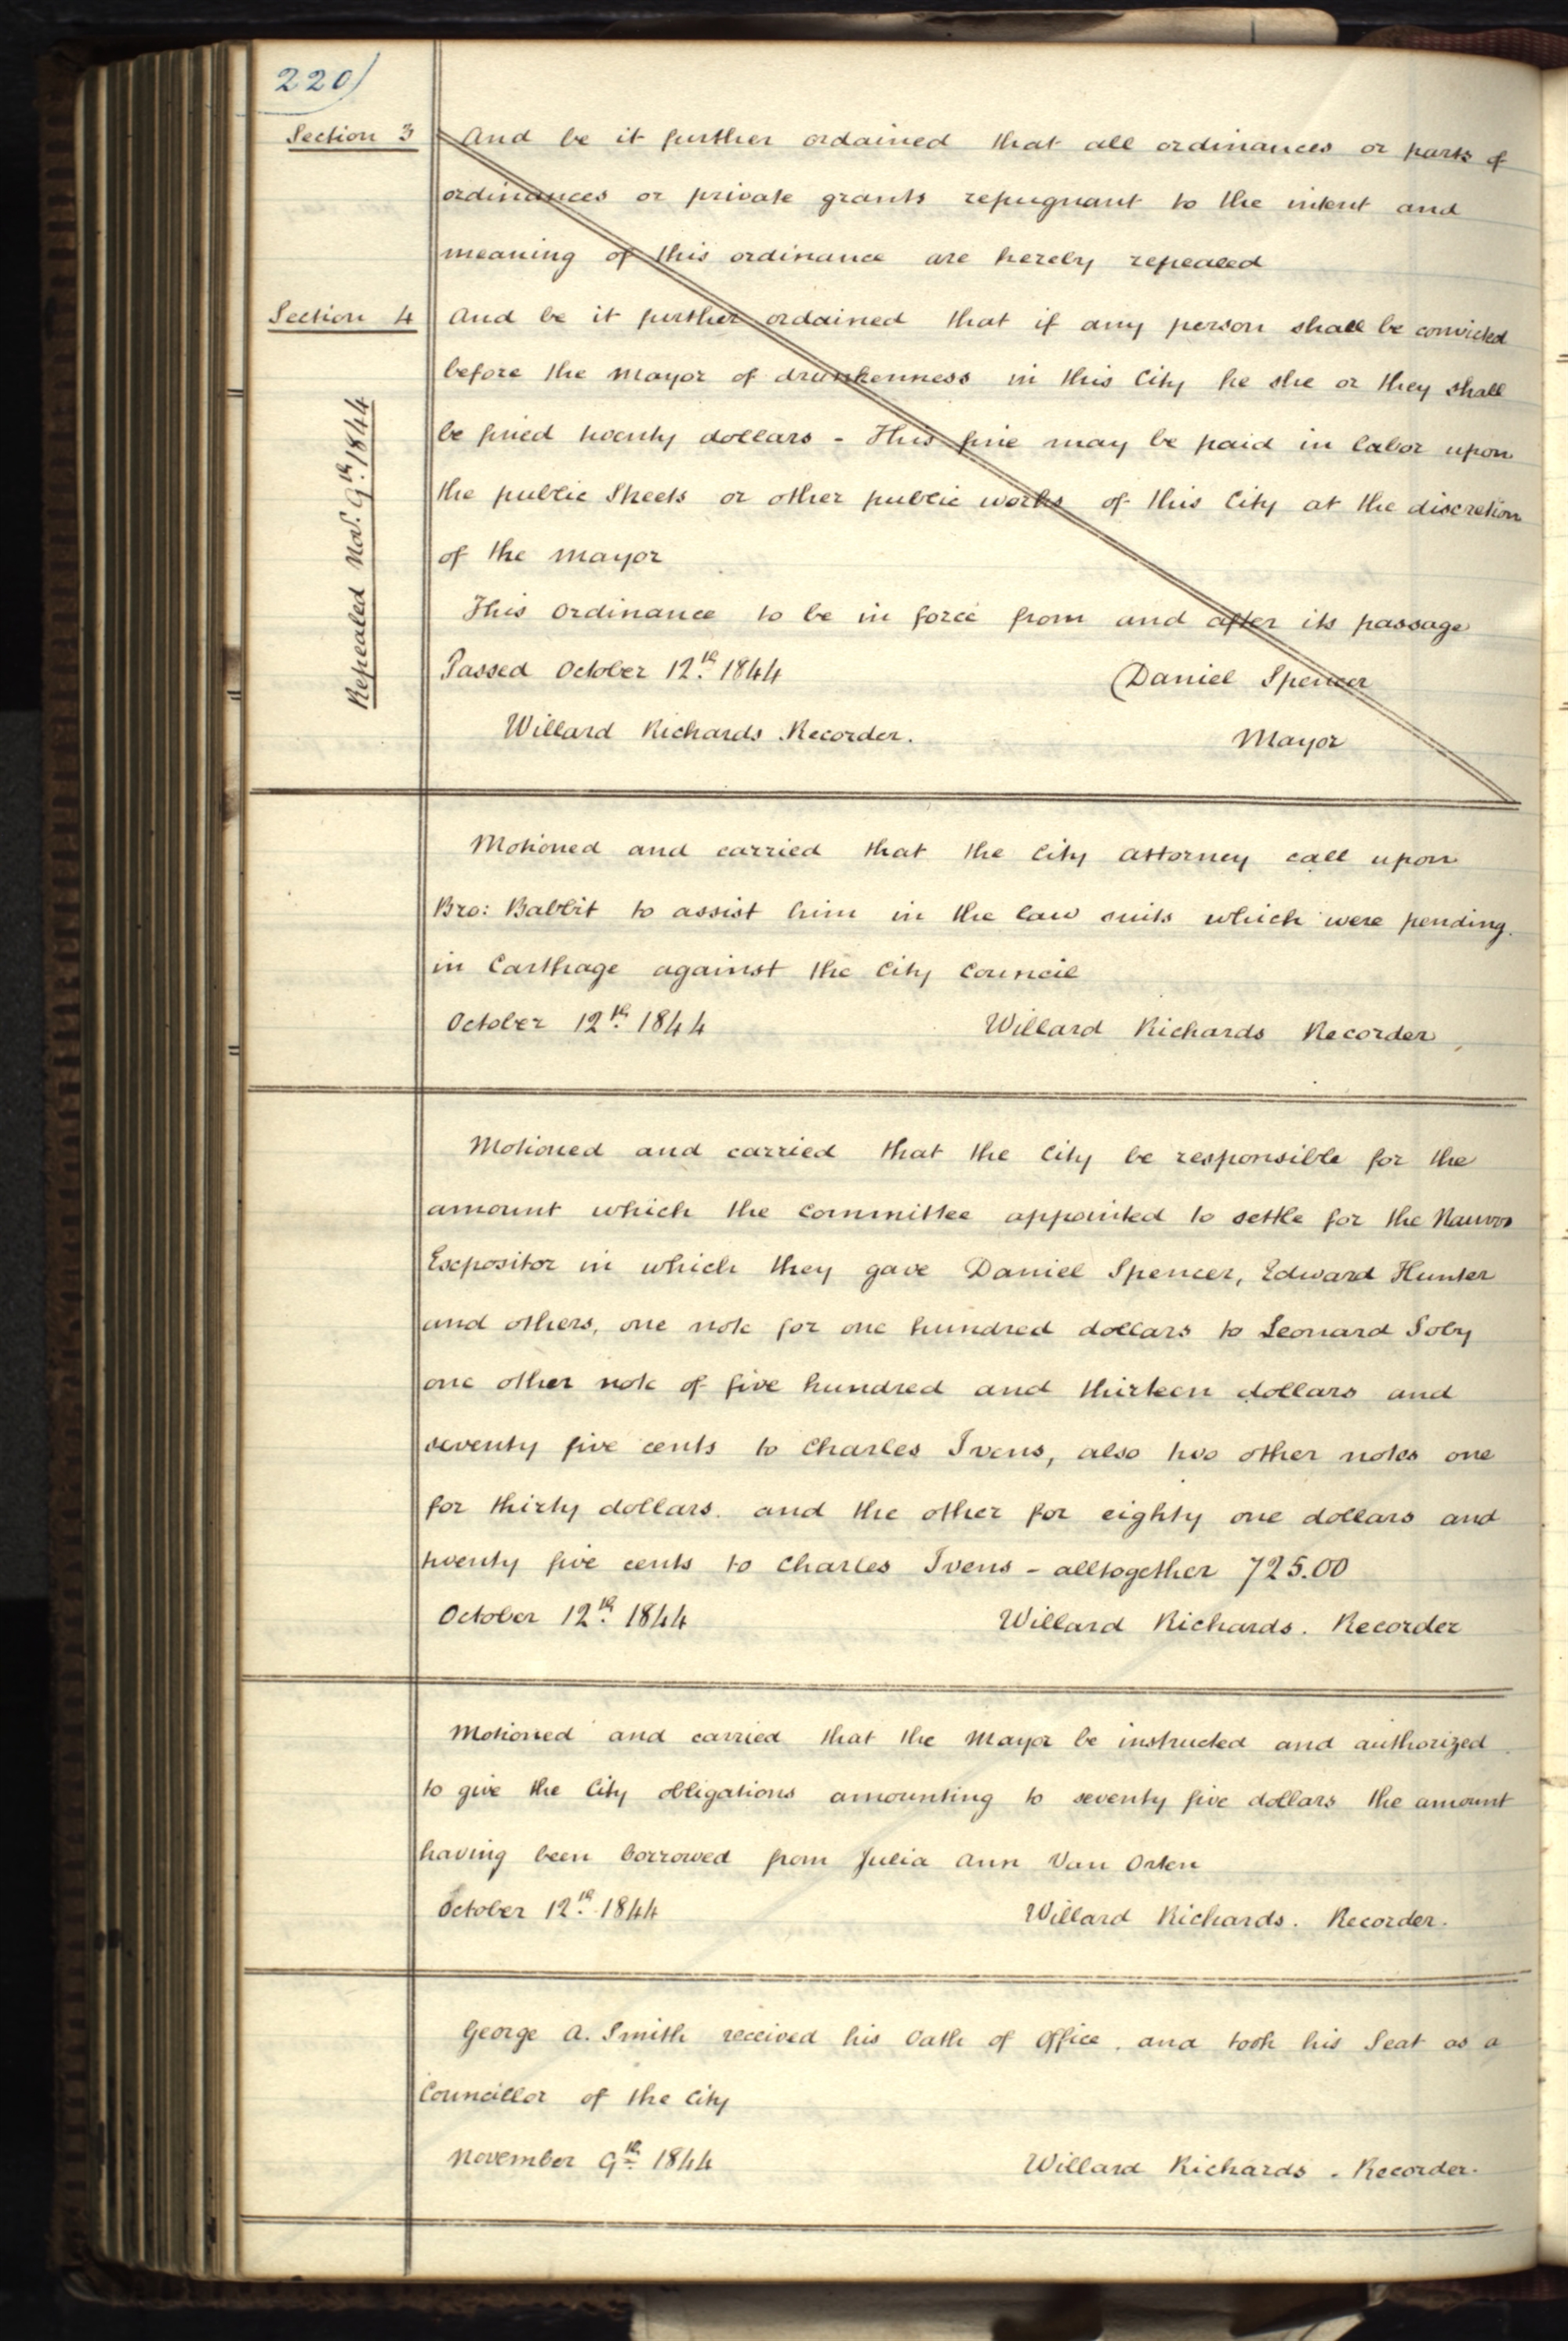 220)
Section 3 And be it further ordained that all ordinances or parts of
ordinances or private grants repugnant to the intent and
meaning of this ordinance are hereby repealed
Section 4 And be it further ordained that if any person shall be convicted
before the Mayor of drunkenness in this City he she or they shall
be fined twenty dollars - This fine may be paid in labor upon
the public Streets or other public works of this City at the discretion
of the Mayor
Repealed Nov. 9th 1844
This Ordinance to be in force from and after its passage
Passed October 12th 1844 Daniel Spencer
Willard Richards Recorder. Mayor
Motioned and carried that the City Attorney call upon
Bro: Babbit to assist him in the law suits which were pending
in Carthage against the City Council
October 12th 1844 Willard Richards Recorder
Motioned and carried that the City be responsible for the
amount which the Committee appointed to settle for the Nauvoo
Expositor in which they gave Daniel Spencer, Edward Hunter
and others, one note for one hundred dollars to Leonard Soby
one other note of five hundred and thirteen dollars and
seventy five cents to Charles Ivens, also two other notes one
for thirty dollars. and the other for eighty one dollars and
twenty five cents to Charles Ivens - alltogether 725.00
October 12th 1844 Willard Richards. Recorder
Motioned and carried that the Mayor be instructed and authorized
to give the City obligations amounting to seventy five dollars the amount
having been borrowed from Julia Ann Van Orten
October 12th 1844 Willard Richards. Recorder.
George A. Smith received his Oath of Office. and took his Seat as a
Councillor of the City
November 9th 1844 Willard Richards. Recorder.